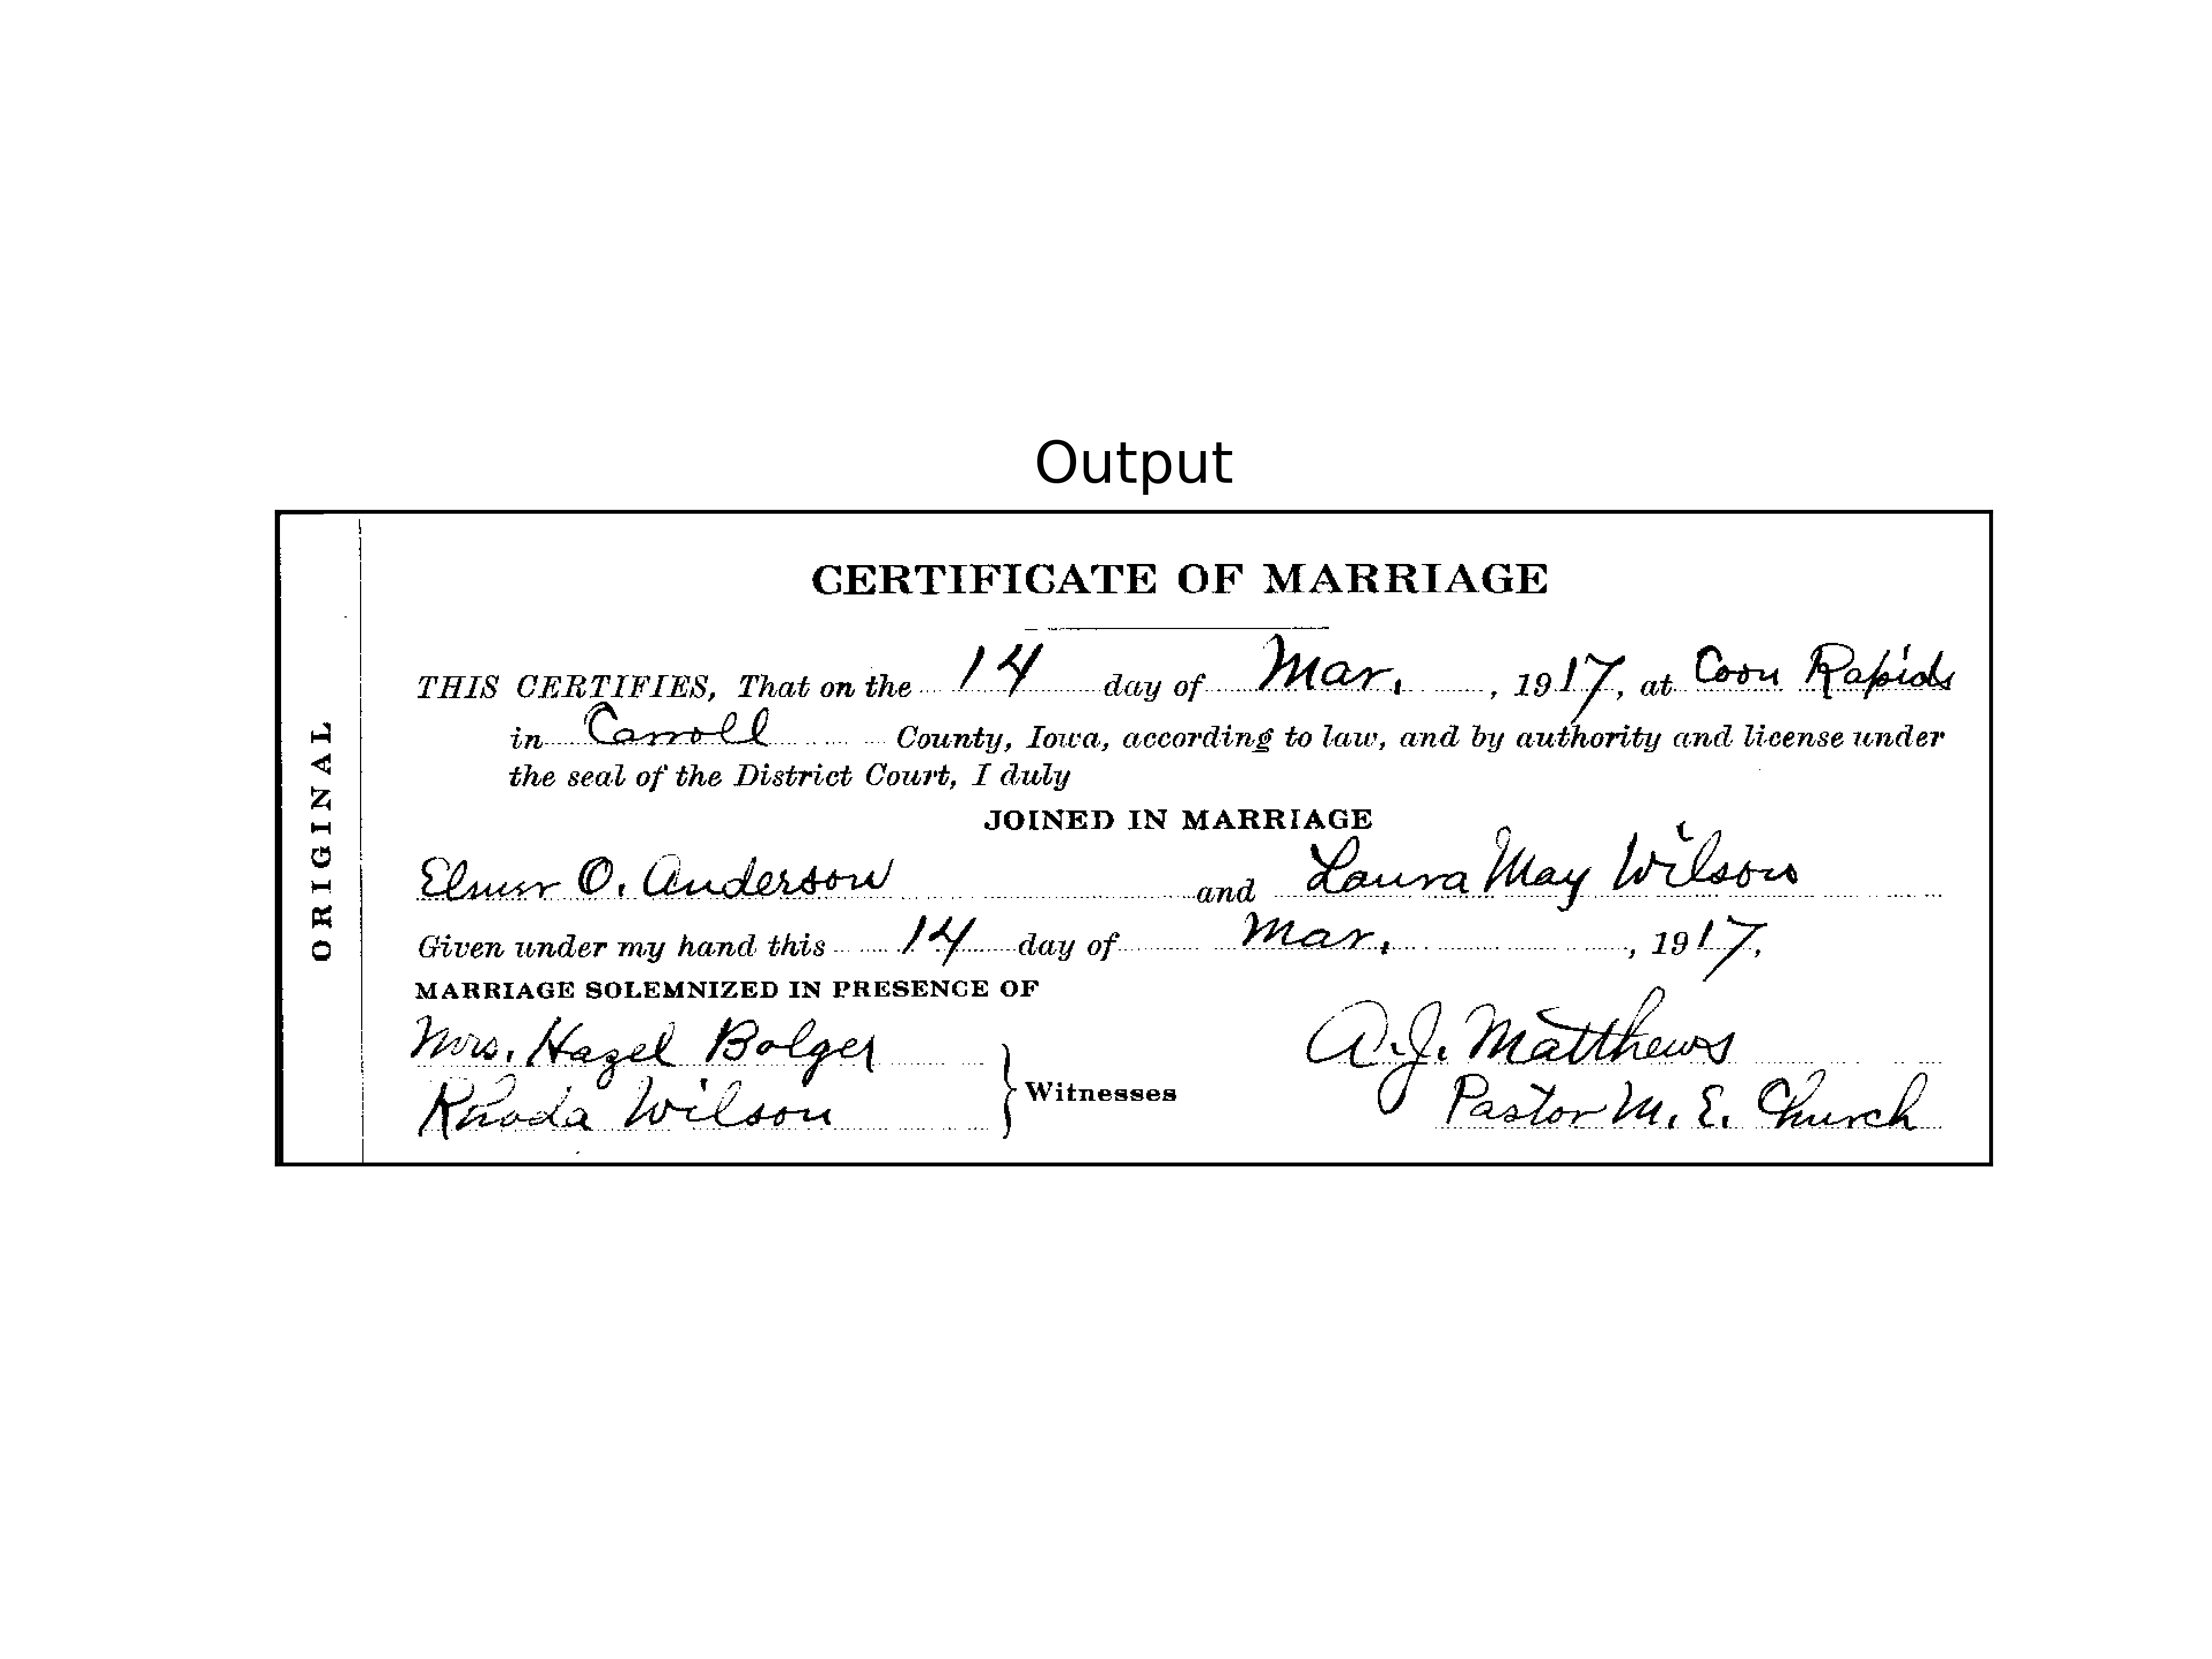 Output
ORIGINAL
CERTIFICATE OF MARRIAGE
THIS CERTIFIES, That on the 14 day of Mar. , 1917, at Coon Rapids
in Carroll County, Iowa, according to law, and by authority and license under
the seal of the District Court, I duly
JOINED IN MARRIAGE
Elmer O. Anderson and Laura May Wilson
Given under my hand this 14 day of Mar. , 1917,
MARRIAGE SOLEMNIZED IN PRESENCE OF
Mrs. Hazel Bolger
Rhoda Wilson
} Witnesses
A. J. Matthews
Pastor M. E. Church